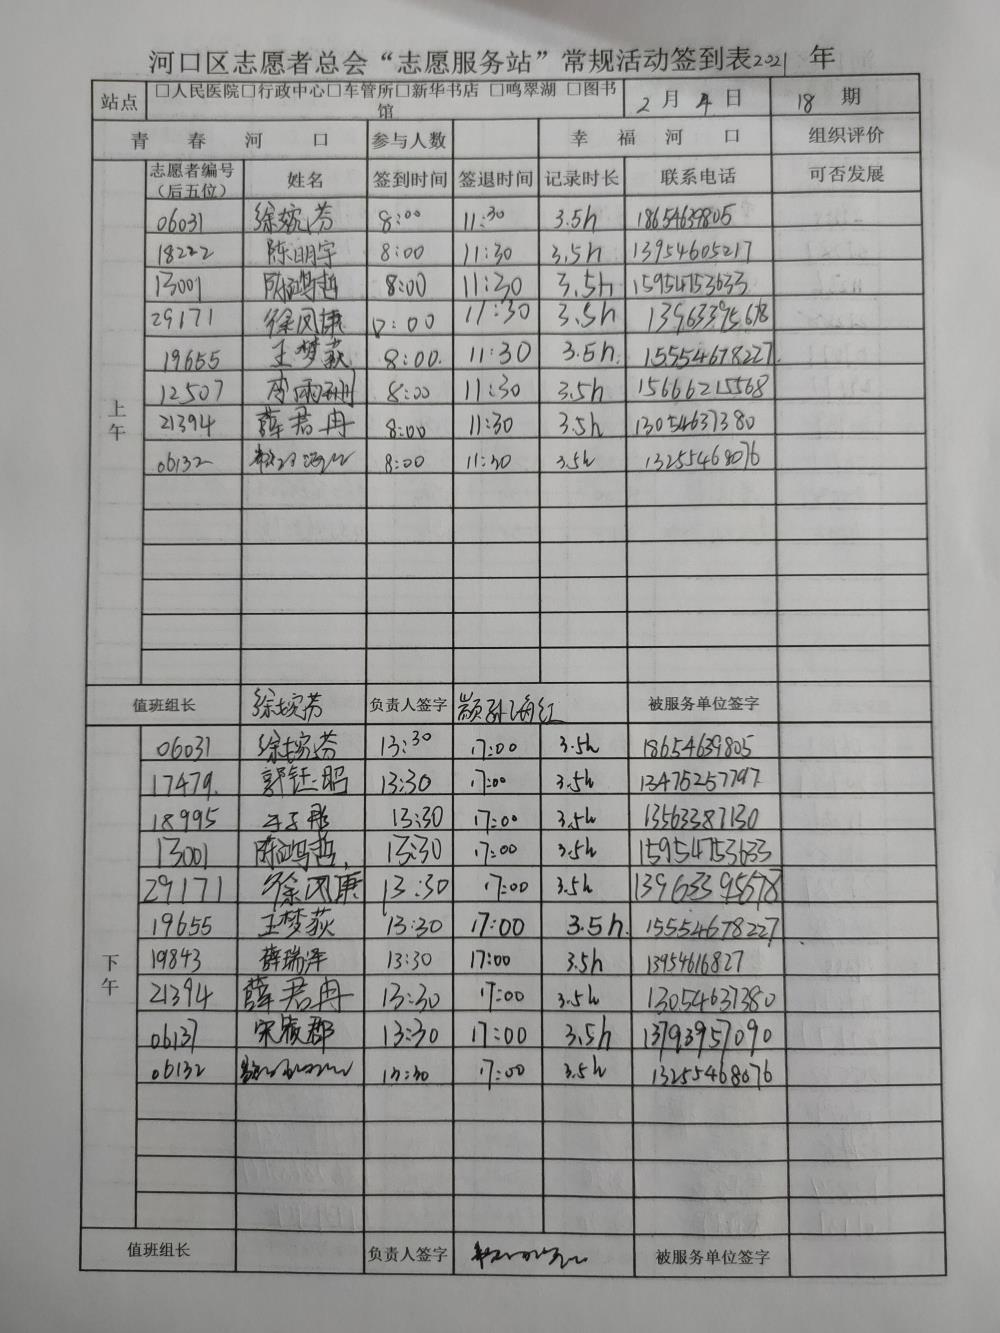 河口区志愿者总会“志愿服务站”常规活动签到表2021年
站点 □人民医院□行政中心□车管所□新华书店 □鸣翠湖 □图书馆 2月4日 18期
青春河口 参与人数 幸福河口 组织评价
志愿者编号（后五位） 姓名 签到时间 签退时间 记录时长 联系电话 可否发展
上午
06031 8:00 11:30 3.5h 18654639805
18222 陈明宇 8:00 11:30 3.5h 13954605217
13001 陈鸿哲 8:00 11:30 3.5h 15954753633
29171 徐风康 8:00 11:30 3.5h
19655 王梦荻 8:00. 11:30 3.5h. 15554678227.
12507 李雨珊 8:00 11:30 3.5h 15666215568
21394 薛君冉 8:00 11:30 3.5h 13054637380
06132 8:00 11:30 3.5h 13255468076
值班组长 负责人签字 颛孙海红 被服务单位签字
下午
06031 13:30 17:00 3.5h 18654639805
17479. 郭钰昭 13:30 17:00 3.5h 13475257797
18995 13:30 17:00 3.5h 13563387130
13001 陈鸿哲. 13:30 17:00 3.5h 15954753633
29171 徐风康 13:30 17:00 3.5h 13963395678
19655 王梦荻 13:30 17:00 3.5h. 15554678227
19843 薛瑞泽 13:30 17:00 3.5h 13954616827
21394 薛君冉 13:30 17:00 3.5h 13054637380
06137 13:30 17:00 3.5h 13793957090
06132 13:30 17:00 3.5h 13255468076
值班组长 负责人签字 被服务单位签字